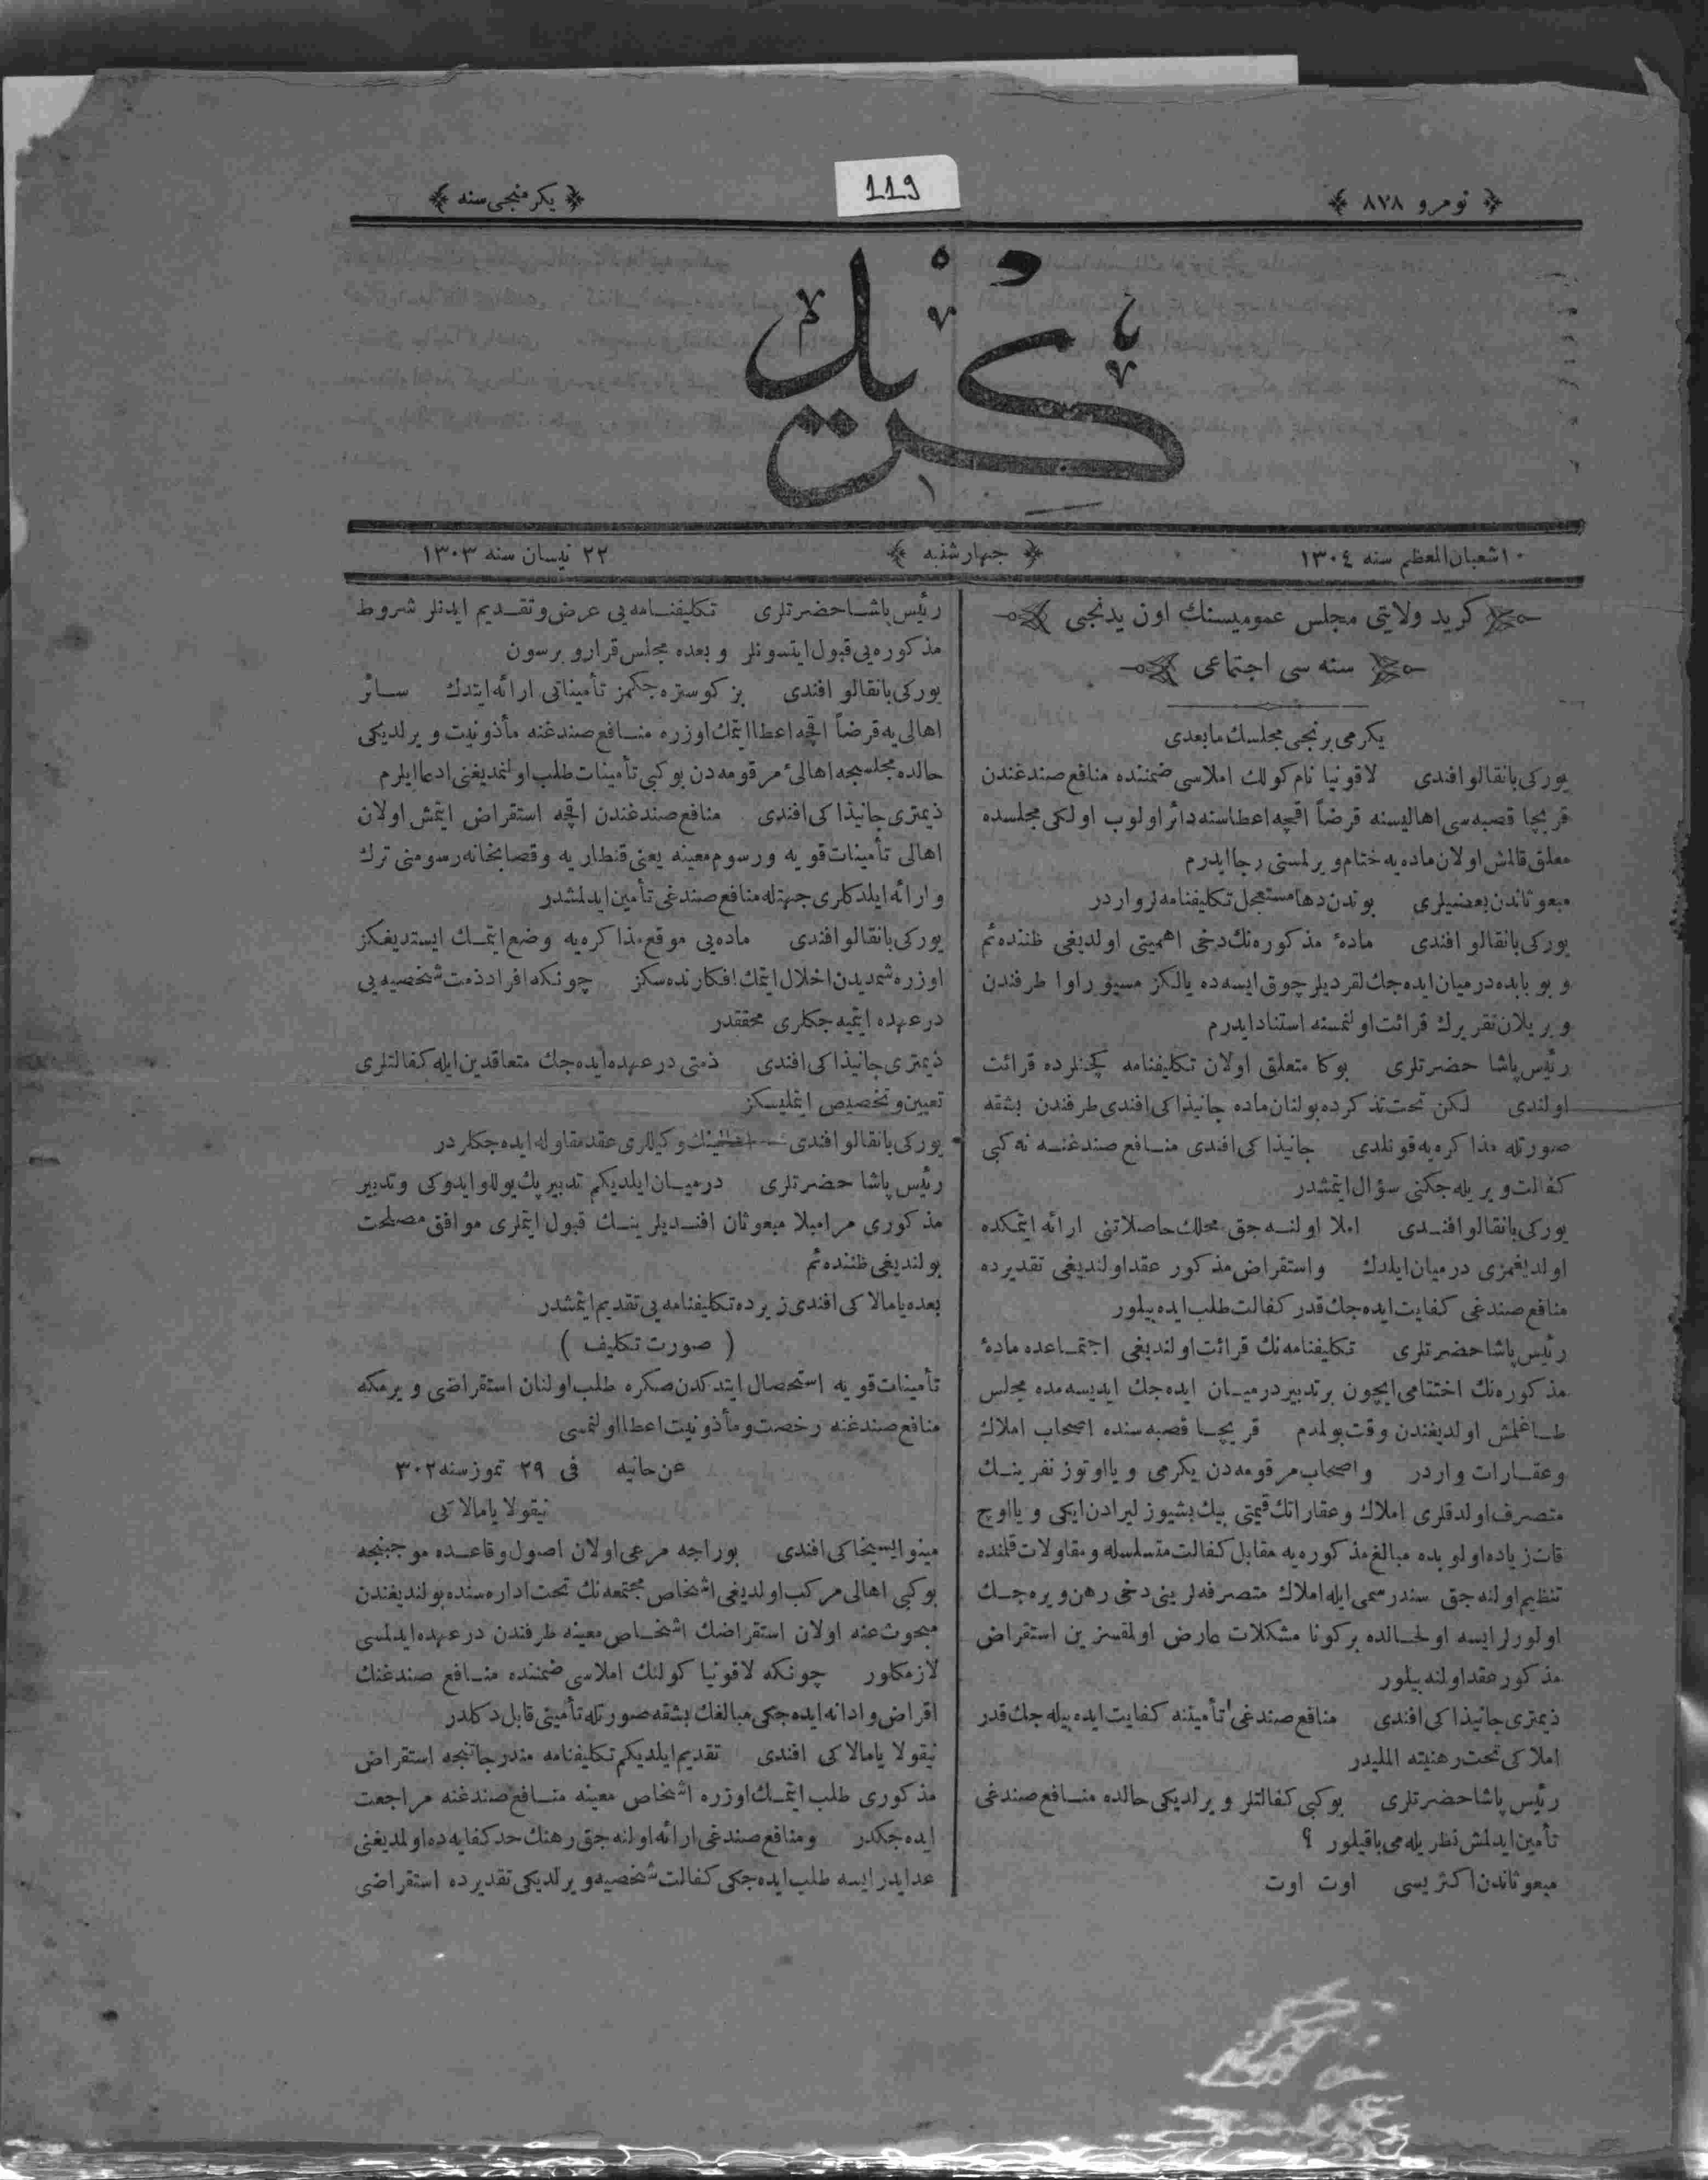 نومرو ٨٧٨
119
يكرمنجى سنه
كريد
١٠ شعبان المعظم سنه ١٣٠٤
چهارشنبه
٢٢ نيسان سنه ١٣٠٣
كريد ولايتى مجلس عموميسنك اون يدنجى
سنه سى اجتماعى
يكرمى برنجى مجلسك مابعدى
يوركى پانقالو افندى لاقونيا نام كولك املاسى ضمننده منافع صندغندن
قريچا قصبه سى اهاليسنه قرضاً اقچه اعطاسنه دائر اولوب اولكى مجلسده
معلق قالمش اولان ماده يه ختام ويرلمسنى رجا ايدرم
مبعوثاندن بعضيلرى بوندن دها مستعجل تكليفنامه لر واردر
يوركى پانقالو افندى مادهٔ مذكوره نك دخى اهميتى اولديغى ظننده ئم
و بو بابده درميان ايده جك لقرديلر چوق ايسه ده يالكز مسيو راوا طرفندن
ويريلان تقريرك قرائت اولنمسنه استناد ايدرم
رئيس پاشا حضرتلرى بوكا متعلق اولان تكليفنامه كچنلرده قرائت
اولندى لكن تحت تذكرده بولنان ماده جانيذاكى افندى طرفندن بشقه
صورتله مذاكره يه قونلدى جانيذاكى افندى منافع صندغنه نه كبى
كفالت ويريله جكنى سؤال ايتمشدر
يوركى پانقالو افندى املا اولنه جق محلك حاصلاتنى ارائه ايتمكده
اولديغمزى درميان ايلدك واستقراض مذكور عقد اولنديغى تقديرده
منافع صندغى كفايت ايده جك قدر كفالت طلب ايده بيلور
رئيس پاشا حضرتلرى تكليفنامه نك قرائت اولنديغى اجتماعده مادهٔ
مذكوره نك اختتامى ايچون بر تدبير درميان ايده جك ايديسه مده مجلس
طاغلمش اولديغندن وقت بولمدم قريچا قصبه سنده اصحاب املاك
وعقارات واردر واصحاب مرقومه دن يكرمى و يا اوتوز نفرينك
متصرف اولدقلرى املاك وعقاراتك قيمتى بيك بشيوز ليرادن ايكى و يا اوچ
قات زياده اولوبده مبالغ مذكوره يه مقابل كفالت متسلسله و مقاولات قلمنده
تنظيم اولنه جق سند رسمى ايله املاك متصرفه لرينى دخى رهن ويره جك
اولورلر ايسه اولحالده بركونا مشكلات عارض اولمقسزين استقراض
مذكور عقد اولنه بيلور
ذيمترى جانيذاكى افندى منافع صندغى تأميننه كفايت ايده بيله جك قدر
املاكى تحت رهنيته المليدر
رئيس پاشا حضرتلرى بوكبى كفالتلر ويرلديكى حالده منافع صندغى
تأمين ايدلمش نظريله مى باقيلور ؟
مبعوثاندن اكثريسى اوت اوت
رئيس پاشا حضرتلرى تكليفنامه يى عرض وتقديم ايدنلر شروط
مذكوره يى قبول ايتسونلر و بعده مجلس قرارويرسون
يوركى پانقالو افندى بز كوستره جكمز تأميناتى ارائه ايتدك سائر
اهالى يه قرضاً اقچه اعطا ايتمك اوزره منافع صندغنه مأذونيت ويرلديكى
حالده مجلسجه اهالئ مرقومه دن بوكبى تأمينات طلب اولنمديغنى ادعا ايلرم
ذيمترى جانيذاكى افندى منافع صندغندن اقچه استقراض ايتمش اولان
اهالى تأمينات قويه ورسوم معينه يعنى قنطاريه وقصابخانه رسومنى ترك
وارائه ايلدكلرى جهتله منافع صندغى تأمين ايدلمشدر
يوركى پانقالو افندى ماده يى موقع مذاكره يه وضع ايتمك ايستديغكز
اوزره شمديدن اخلال ايتمك افكارنده سكز چونكه افراد ذمت شخصيه يى
درعهده ايتميه جكلرى محققدر
ذيمترى جانيذاكى افندى ذمتى درعهده ايده جك متعاقدين ايله كفالتلرى
تعيين وتخصيص ايتمليسكز
يوركى پانقالو افندى وكيللرى عقد مقاوله ايده جكلردر
رئيس پاشا حضرتلرى درميان ايلديكم تدبير پك يوللو ايدوكى وتدبير
مذكورى مرامبلا مبعوثان افنديلرينك قبول ايتملرى موافق مصلحت
بولنديغى ظننده ئم
بعده يامالاكى افندى زيرده تكليفنامه يى تقديم ايتمشدر
( صورت تكليف )
تأمينات قويه استحصال ايتدكدن صكره طلب اولنان استقراضى ويرمكه
منافع صندغنه رخصت ومأذونيت اعطا اولنمسى
عن حانيه فى ٢٩ تموز سنه ٣٠٢
نيقولا يامالاكى
مينو ايسيخاكى افندى بوراجه مرعى اولان اصول وقاعده موجبنجه
بوكبى اهالى مركب اولديغى اشخاص مجتمعه نك تحت اداره سنده بولنديغندن
مبحوث عنه اولان استقراضك اشخاص معينه طرفندن درعهده ايدلمسى
لازمكلور چونكه لاقونيا كولنك املاسى ضمننده منافع صندغنك
اقراض وادانه ايده جكى مبالغك بشقه صورتله تأمينى قابل دكلدر
نيقولا يامالاكى افندى تقديم ايلديكم تكليفنامه مندرجاتنجه استقراض
مذكورى طلب ايتمك اوزره اشخاص معينه منافع صندغنه مراجعت
ايده جكدر ومنافع صندغى ارائه اولنه جق رهنك حد كفايه ده اولمديغنى
عد ايدر ايسه طلب ايده جكى كفالت شخصيه ويرلديكى تقديرده استقراضى